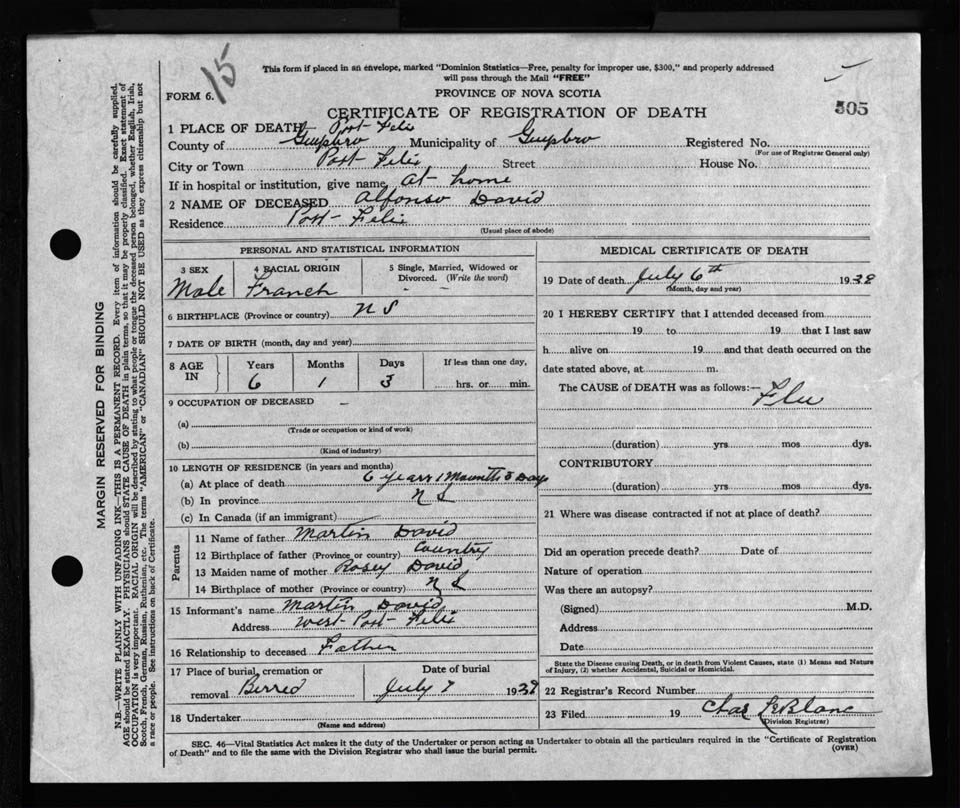 15
This form if placed in an envelope, marked "Dominion Statistics—Free, penalty for improper use, $300," and properly addressed
will pass through the Mail "FREE"
FORM 6.
PROVINCE OF NOVA SCOTIA
505
CERTIFICATE OF REGISTRATION OF DEATH
1 PLACE OF DEATH— Port-Felix
County of Guysbro Municipality of Guysbro Registered No.
(For use of Registrar General only)
City or Town Port Felix Street House No.
If in hospital or institution, give name at-home
2 NAME OF DECEASED Alfonso David
Residence Port-Felix
(Usual place of abode)
PERSONAL AND STATISTICAL INFORMATION
3 SEX 4 RACIAL ORIGIN 5 Single, Married, Widowed or
Divorced. (Write the word)
Male Franch - -
6 BIRTHPLACE (Province or country) N S
7 DATE OF BIRTH (month, day and year)
8 AGE Years Months Days If less than one day,
IN 6 1 3 hrs. or min.
9 OCCUPATION OF DECEASED –
(a)
(Trade or occupation or kind of work)
(b)
(Kind of industry)
10 LENGTH OF RESIDENCE (in years and months)
(a) At place of death 6 years 1 Days
(b) In province N S
(c) In Canada (if an immigrant)
Parents
11 Name of father Martin David
12 Birthplace of father (Province or country) Country
13 Maiden name of mother Rosey David
14 Birthplace of mother (Province or country) N S
15 Informant's name Martin David
Address West-Port-Felix
16 Relationship to deceased Father
17 Place of burial, cremation or Date of burial
removal Berred July 7 193
18 Undertaker
(Name and address)
MEDICAL CERTIFICATE OF DEATH
19 Date of death July 6th 1938
(Month, day and year)
20 I HEREBY CERTIFY that I attended deceased from
19 to 19 that I last saw
h alive on 19 and that death occurred on the
date stated above, at m.
The CAUSE of DEATH was as follows:—
Flu
(duration) yrs mos dys.
CONTRIBUTORY
(duration) yrs mos dys.
21 Where was disease contracted if not at place of death?
Did an operation precede death? Date of
Nature of operation
Was there an autopsy?
(Signed) M.D.
Address
Date
State the Disease causing Death, or in death from Violent Causes, state (1) Means and Nature
of Injury, (2) whether Accidental, Suicidal or Homicidal.
22 Registrar's Record Number
23 Filed 19 Chas LeBlanc
(Division Registrar)
SEC. 46—Vital Statistics Act makes it the duty of the Undertaker or person acting as Undertaker to obtain all the particulars required in the "Certificate of Registration
of Death" and to file the same with the Division Registrar who shall issue the burial permit.
(OVER)
MARGIN RESERVED FOR BINDING
N.B.—WRITE PLAINLY WITH UNFADING INK—THIS IS A PERMANENT RECORD. Every item of information should be carefully supplied.
AGE should be stated EXACTLY. PHYSICIANS should STATE CAUSE OF DEATH in plain terms, so that it may be properly classified. Exact statement of
OCCUPATION is very important. RACIAL ORIGIN will be described by stating to what people or tongue the deceased person belonged, whether English, Irish,
Scotch, French, German, Russian, Ruthenian, etc. The terms "AMERICAN" or "CANADIAN" SHOULD NOT BE USED as they express citizenship but not
a race or people. See instructions on back of Certificate.